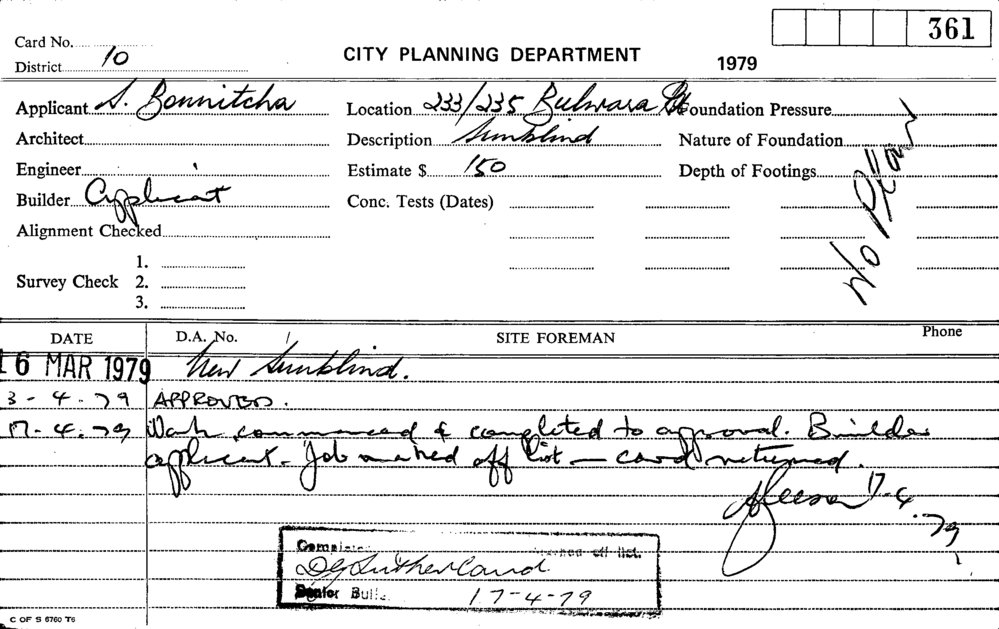 361
Card No.
District 10
CITY PLANNING DEPARTMENT
1979
Applicant S. Bonnitcha
Location 233/235 Bulwara Rd
Foundation Pressure
Architect
Description Sunblind
Nature of Foundation
Engineer
Estimate $ 150
Depth of Footings
Builder Applicant
Conc. Tests (Dates)
No Plan
Alignment Checked
Survey Check
1.
2.
3.
DATE
D.A. No.
SITE FOREMAN
Phone
16 MAR 1979 New Sunblind.
3-4.79 APPROVED.
17-4.79 Work commenced & completed to approval. Builder
applicant. Job marked off list – card returned.
17-4.79
off list.
D Sutherland
Senior
17-4-79
C OF S 6760 T6